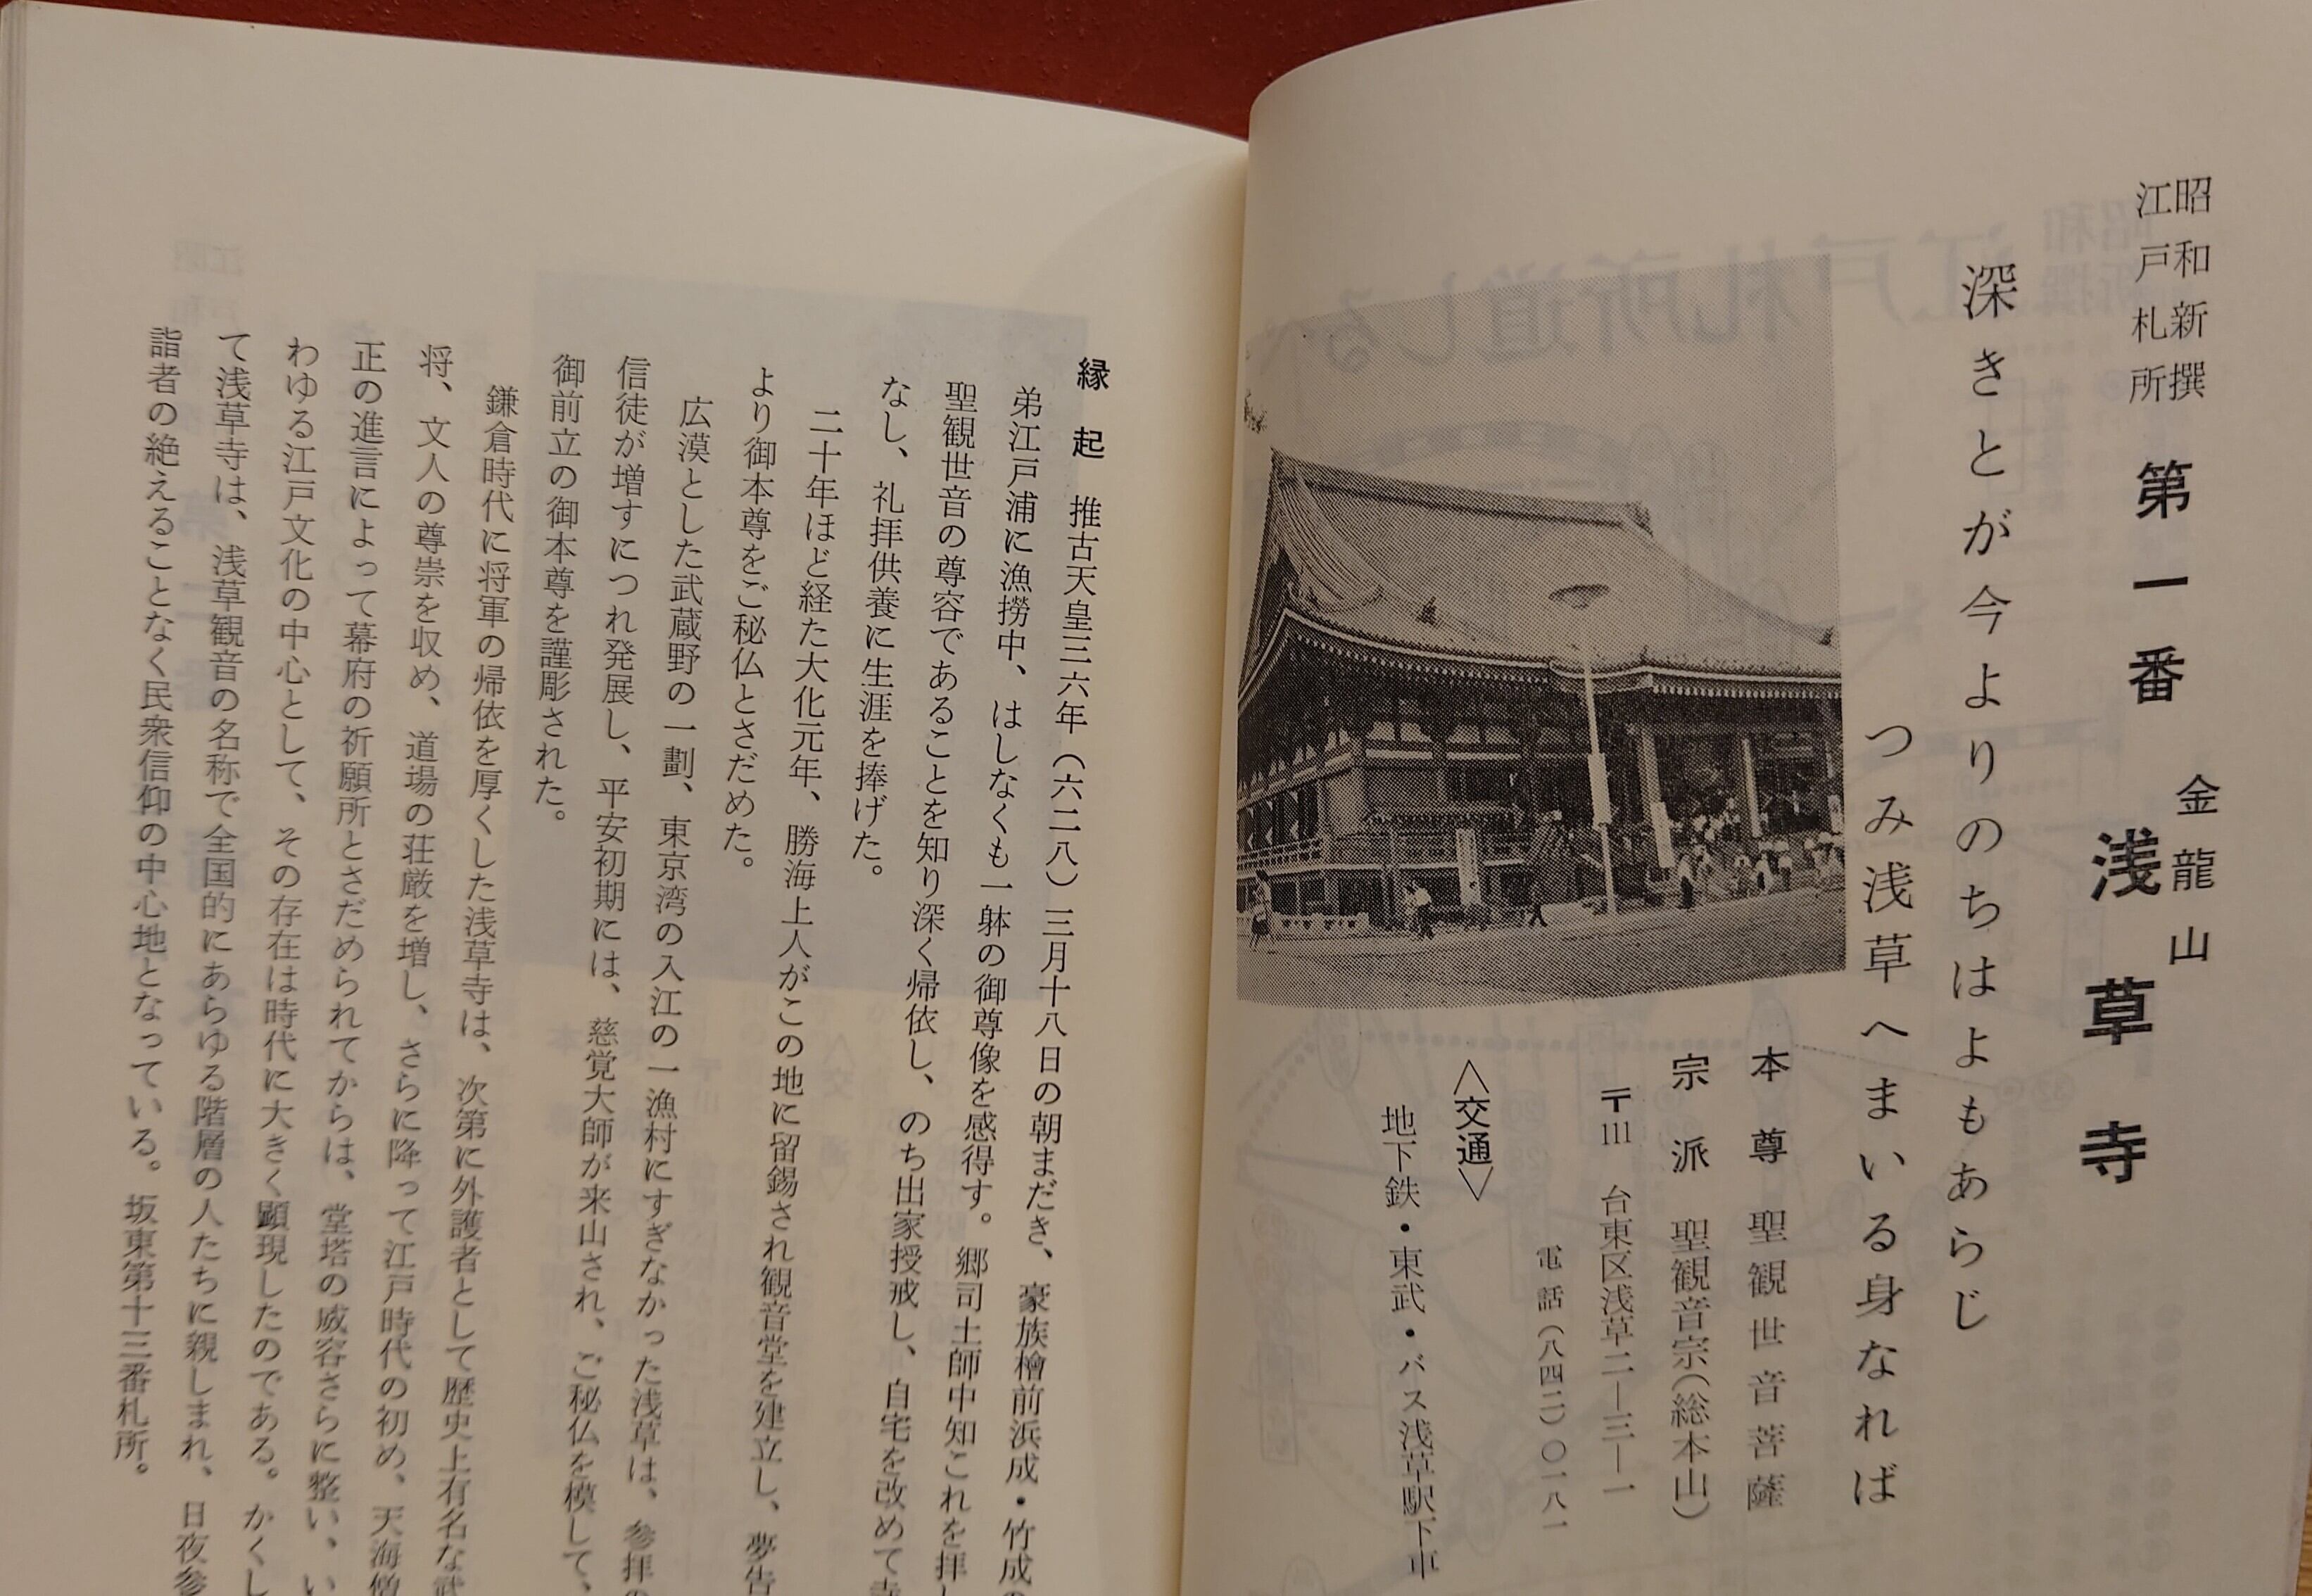 昭和新撰
江戸札所
第一番
金龍山
浅草寺
深きとが今よりのちはよもあらじ
つみ浅草へまいる身なれば
本尊 聖観世音菩薩
宗派 聖観音宗(総本山)
〒111 台東区浅草二―三―一
電話(八四二)〇一八一
〈交通〉
地下鉄・東武・バス浅草駅下車
縁起 推古天皇三六年(六二八)三月十八日の朝まだき、豪族檜前浜成・竹成の
弟江戸浦に漁撈中、はしなくも一躰の御尊像を感得す。郷司土師中知これを拝し
聖観世音の尊容であることを知り深く帰依し、のち出家授戒し、自宅を改めて寺
なし、礼拝供養に生涯を捧げた。
二十年ほど経た大化元年、勝海上人がこの地に留錫され観音堂を建立し、夢告
より御本尊をご秘仏とさだめた。
広漠とした武蔵野の一劃、東京湾の入江の一漁村にすぎなかった浅草は、参拝の
信徒が増すにつれ発展し、平安初期には、慈覚大師が来山され、ご秘仏を模して、
御前立の御本尊を謹彫された。
鎌倉時代に将軍の帰依を厚くした浅草寺は、次第に外護者として歴史上有名な武
将、文人の尊崇を収め、道場の荘厳を増し、さらに降って江戸時代の初め、天海僧
正の進言によって幕府の祈願所とさだめられてからは、堂塔の威容さらに整い、い
わゆる江戸文化の中心として、その存在は時代に大きく顕現したのである。かくし
て浅草寺は、浅草観音の名称で全国的にあらゆる階層の人たちに親しまれ、日夜参
詣者の絶えることなく民衆信仰の中心地となっている。坂東第十三番札所。